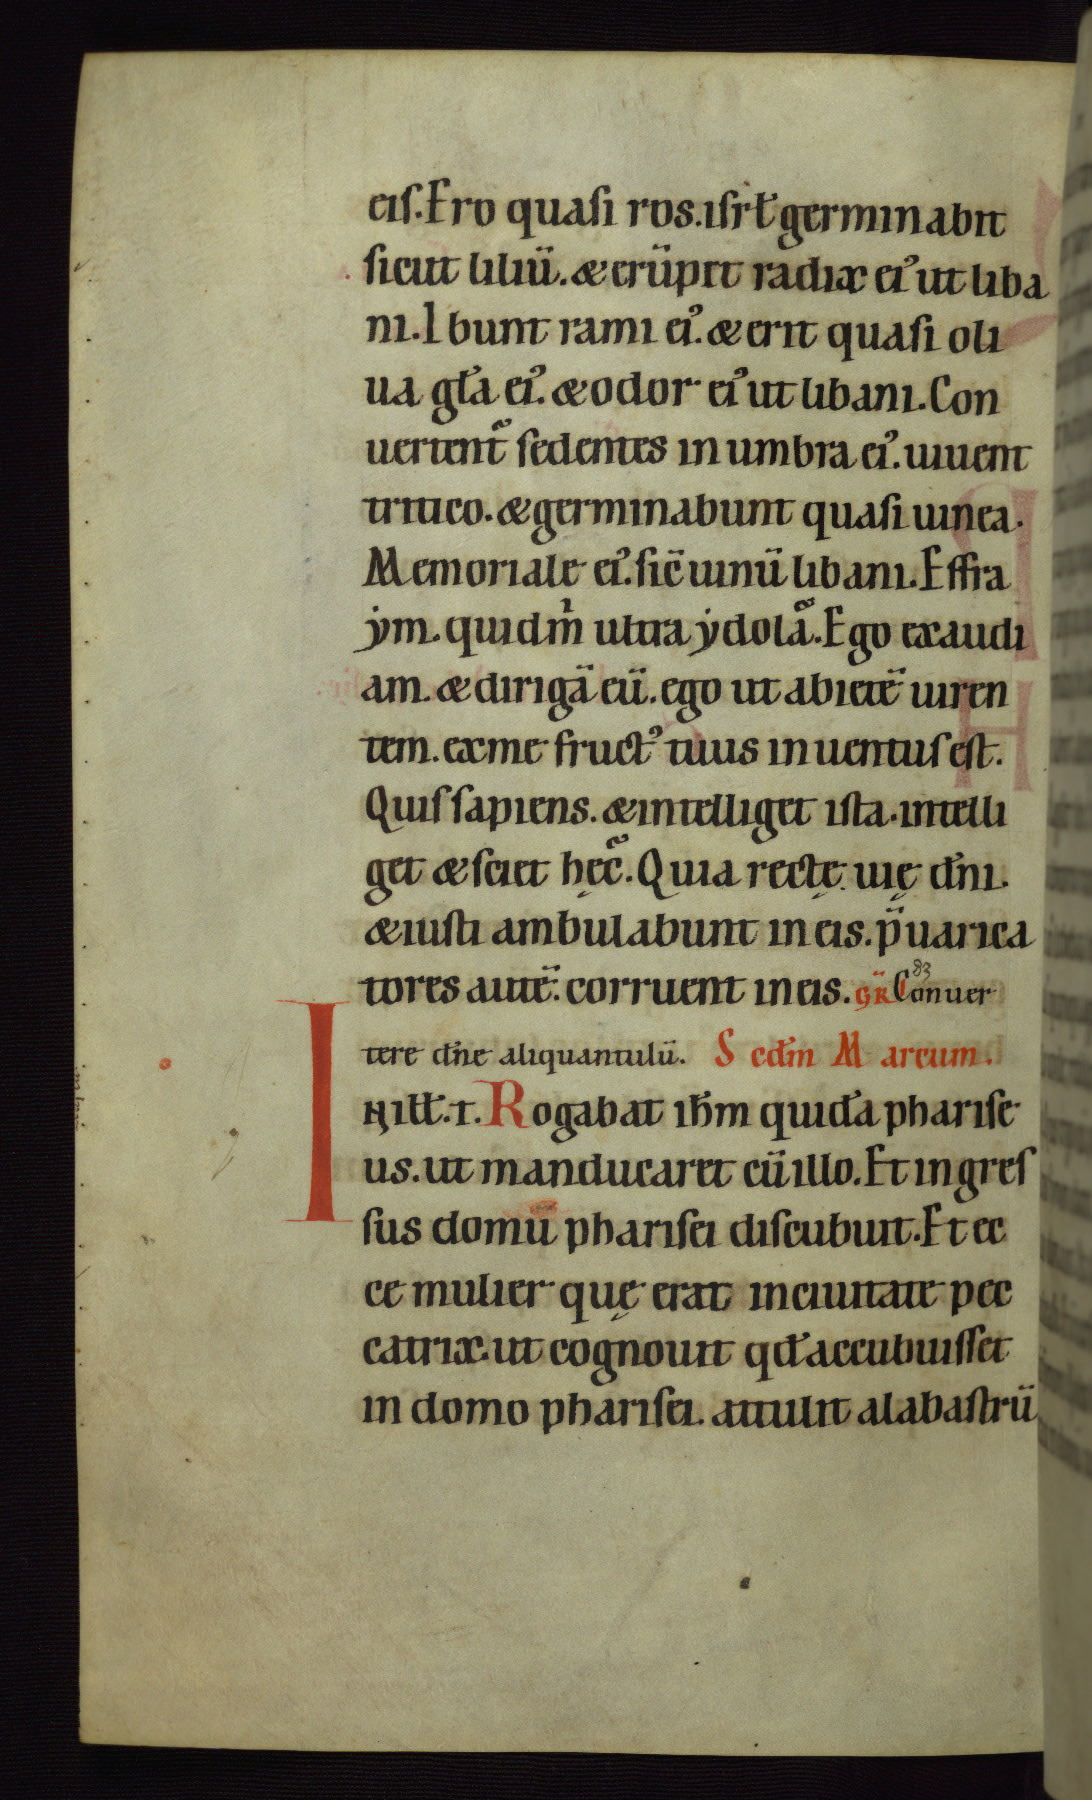 eis. Ero quasi ros. isrl̄ germinabit
sicut liliū. & erūpet radix ei᾽ ut liba
ni. Ibunt rami ei᾽. & erit quasi oli
ua gl̄a ei᾽. & odor ei᾽ ut libani. Con
uertent᷑ sedentes in umbra ei᾽. uiuent
tritico. & germinabunt quasi uinea.
Memoriale ei᾽. sic̄ uinū libani. Effra
ẏm. quid m̍ ultra ẏdola᷑. Ego exaudi
am. & dirigā eū. ego ut abietē uiren
tem. ex me fruct᾽ tuus inuentus est.
Quis sapiens. & intelliget ista. intelli
get & sciet hęc᷑. Quia rectę uię dn̄i.
& iusti ambulabunt in eis. p̄uarica
tores autē. corruent in eis. GR̄ Conuer
tere dn̄e aliquantulū. Scdm̄ Marcum.
IN ill̄. t. Rogabat ih̄m quidā pharise
us. ut manducaret cū illo. Et ingres
sus domū pharisei discubuit. Et ec
ce mulier quę erat in ciuitate pec
catrix. ut cognouit qd̄ accubuisset
in domo pharisei. attulit alabastrū